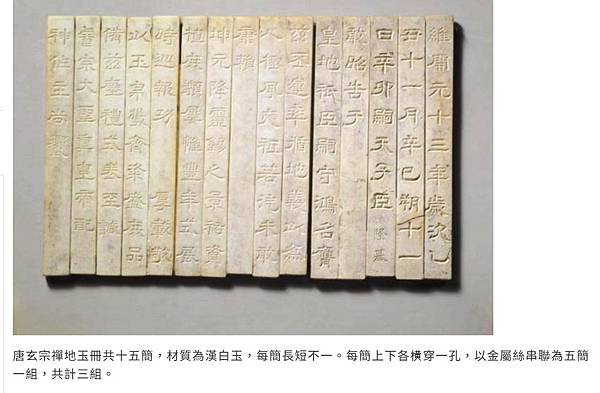 維開元十三年歲次乙
丑十一月辛巳朔十一
日辛卯嗣天子臣隆基
敢昭告于
皇地祇臣嗣守鴻名膺
茲丕運率循地義以為
人極夙夜祗若汔未敢
康賴
坤元降靈錫之景祐資
植庶類屢惟豐年式展
時巡報功厚載敬
以玉帛犧齊粢盛庶品
備茲瘞禮式表至誠
睿宗大聖真皇帝配
神作主尚饗
唐玄宗禪地玉冊共十五簡，材質為漢白玉，每簡長短不一。每簡上下各橫穿一孔，以金屬絲串聯為五簡
一組，共計三組。